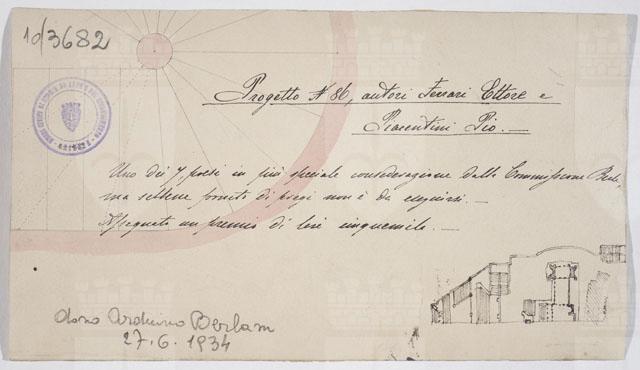 10/3682
Progetto N 86, autori Ferrari Ettore e
Piacentini Pio. —
Uno dei 7, presi in più speciale considerazione dalla Commissione Reale,
ma sebbene fornito di pregi non è da eseguirsi. —
Assegnato un premio di lire cinquemila. —
dono Arduino Berlam
27. 6. 1934